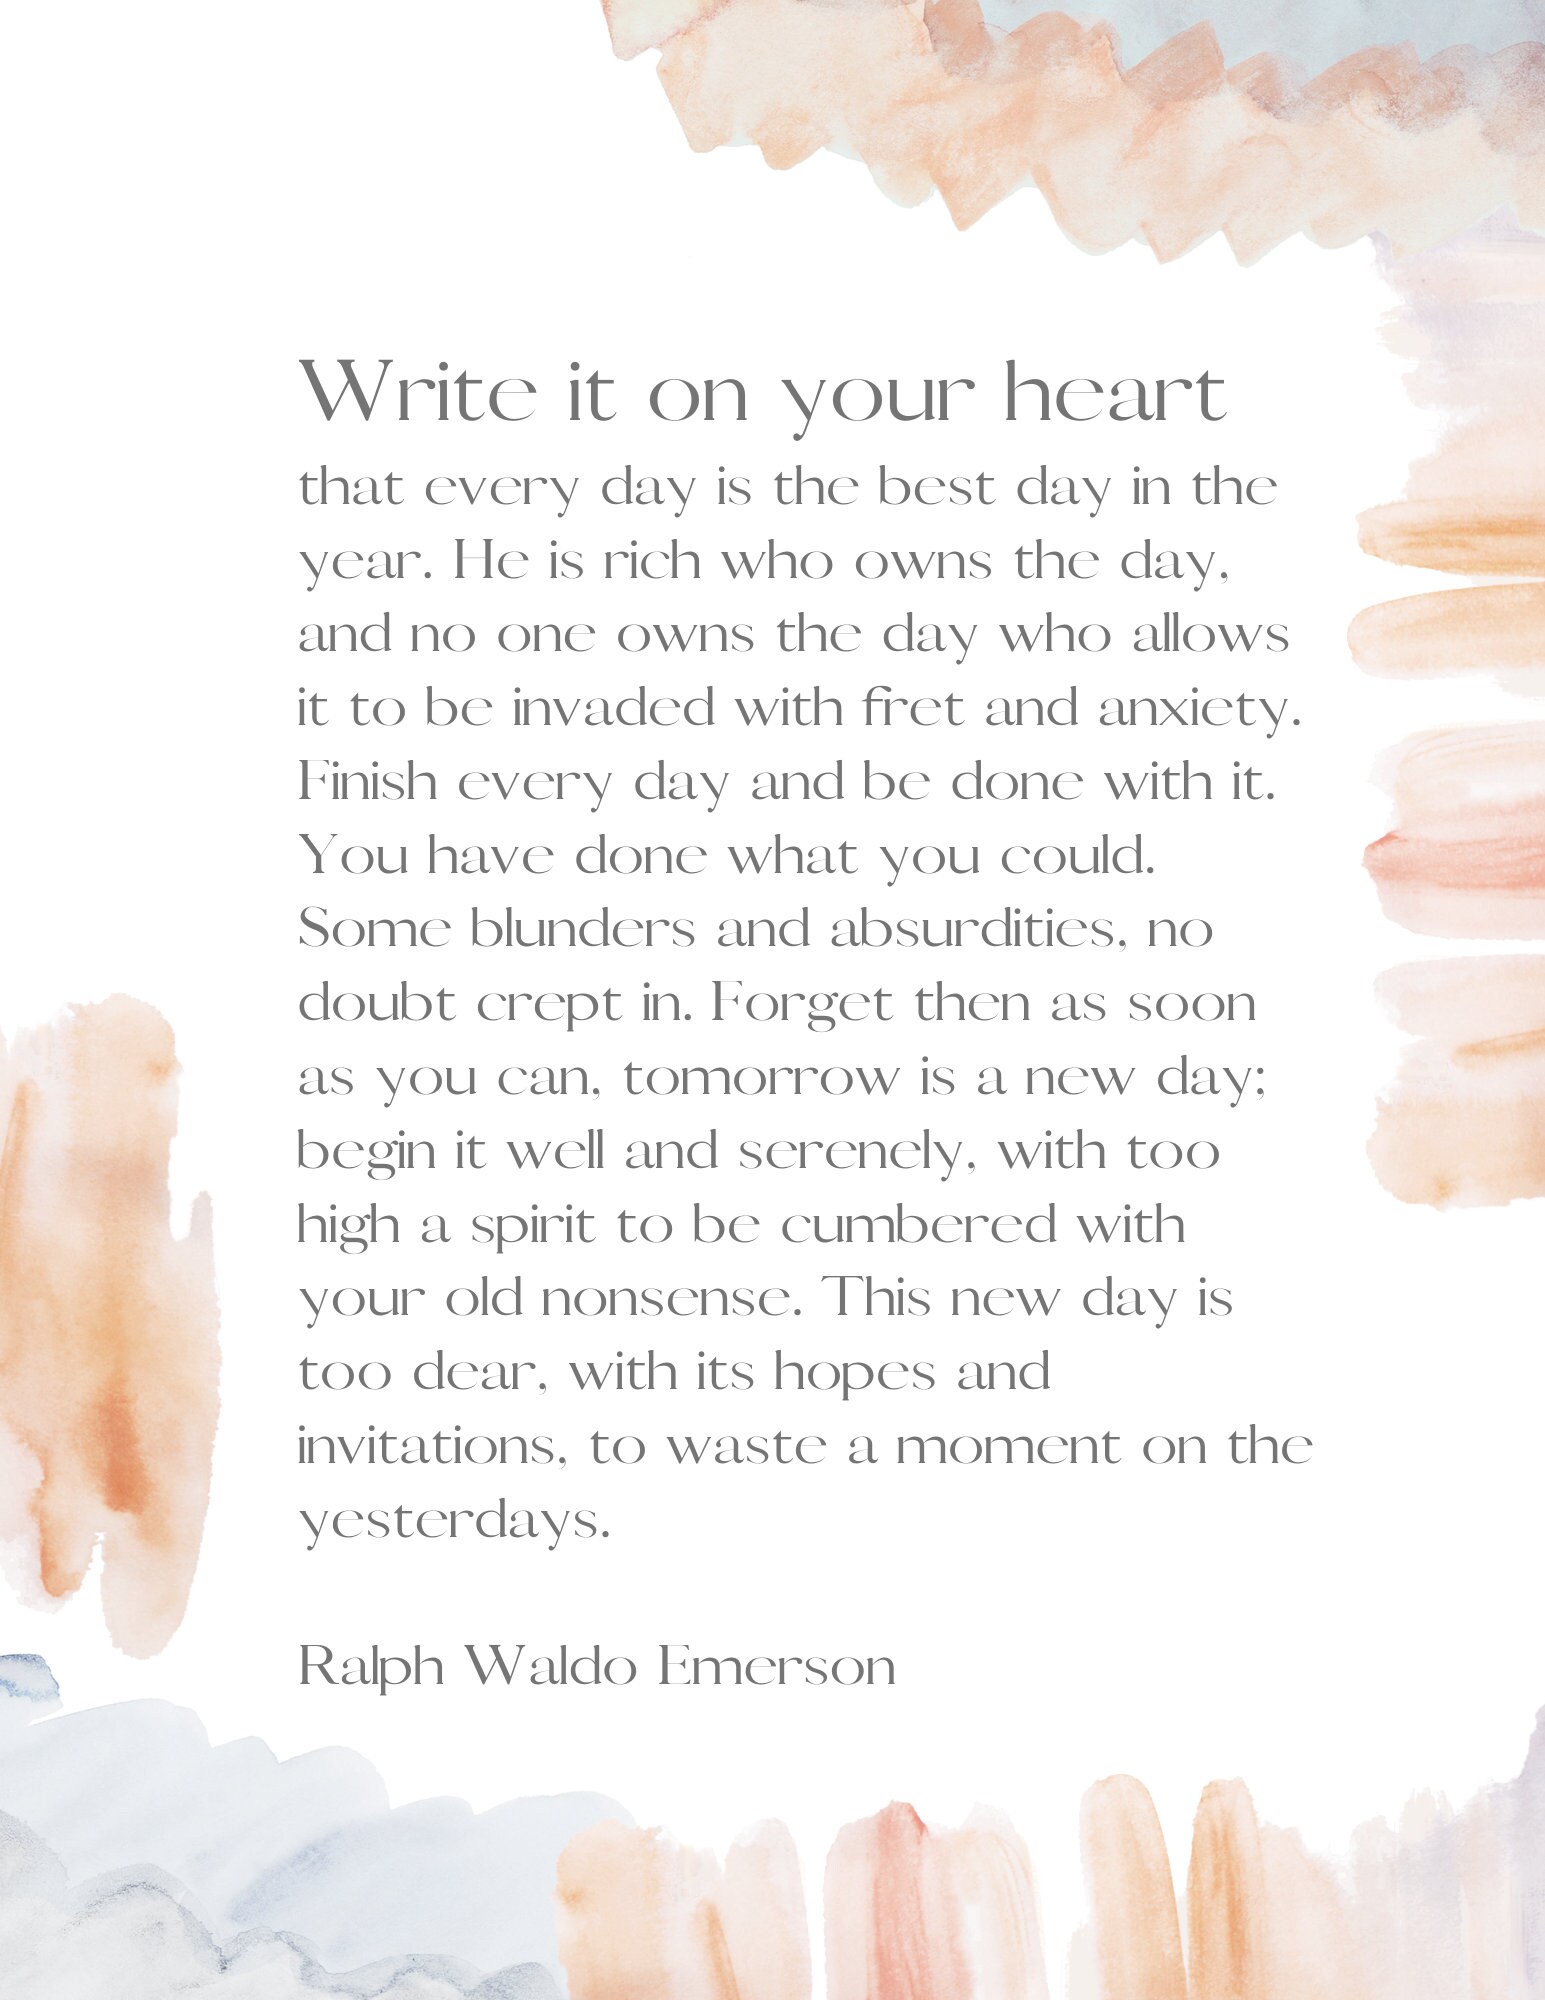 Write it on your heart
that every day is the best day in the
year. He is rich who owns the day,
and no one owns the day who allows
it to be invaded with fret and anxiety.
Finish every day and be done with it.
You have done what you could.
Some blunders and absurdities, no
doubt crept in. Forget then as soon
as you can, tomorrow is a new day;
begin it well and serenely, with too
high a spirit to be cumbered with
your old nonsense. This new day is
too dear, with its hopes and
invitations, to waste a moment on the
yesterdays.
Ralph Waldo Emerson